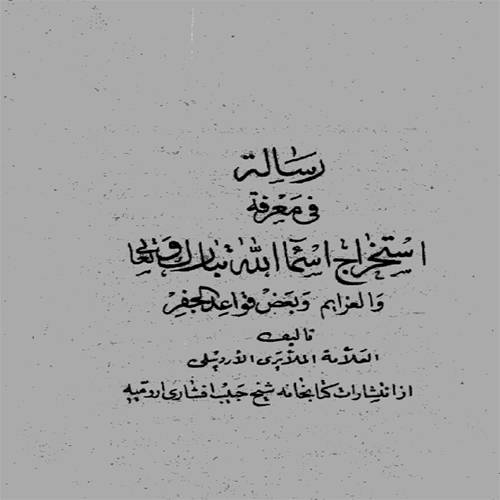 رسالة
في معرفة
استخراج اسماء الله تبارك وتعالى
والعزايم وبعض قواعد الجفر
تاليف
العلامة الملا يرى الاردبيلى
از انتشارات كتابخانه شيخ حبيب افشارى اروميه